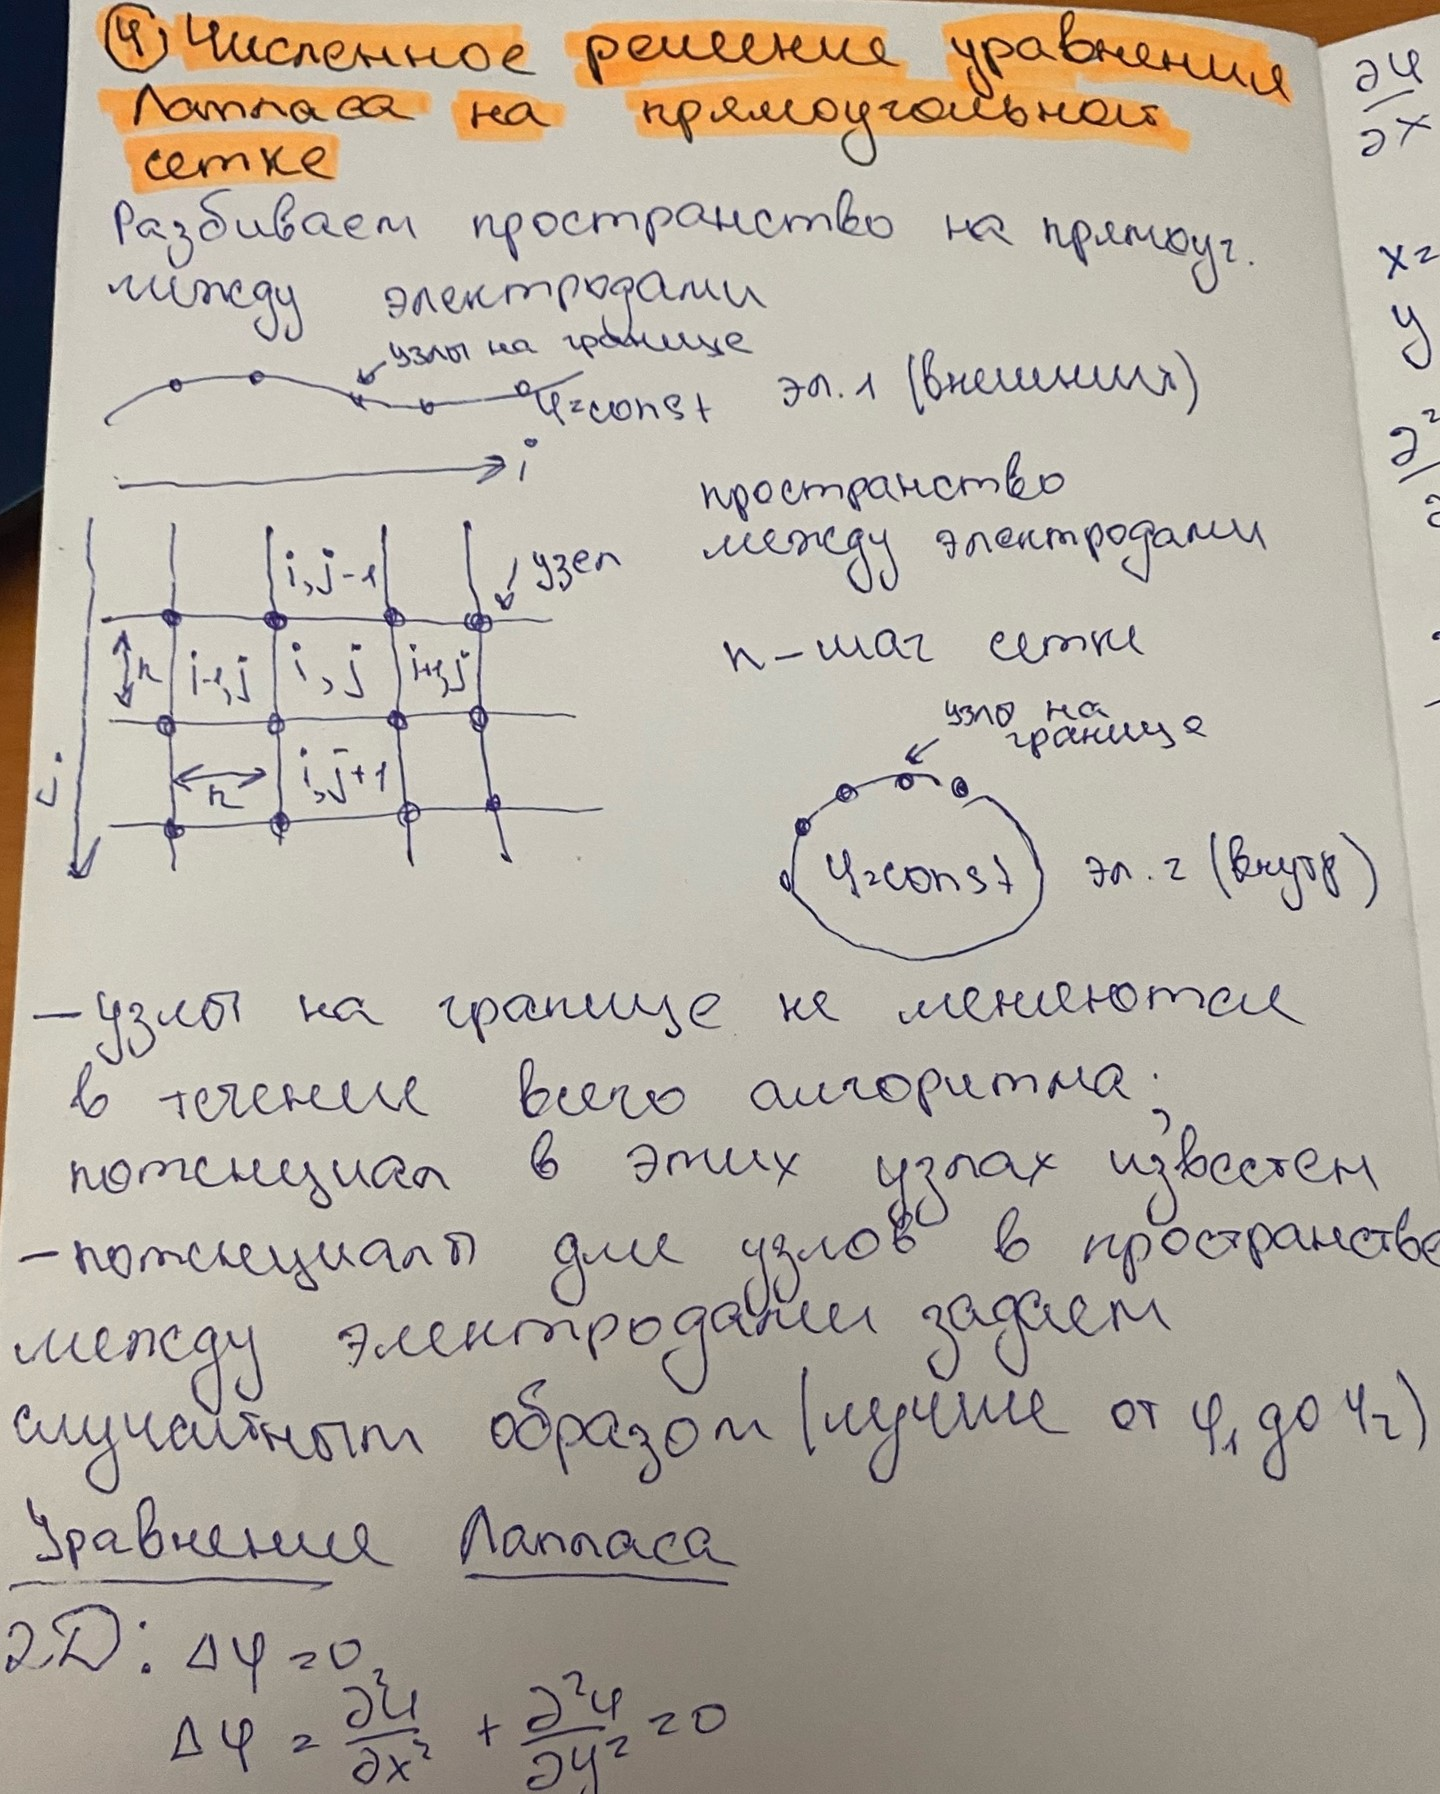 4) Численное решение уравнения
Лапласа на прямоугольной
сетке
Разбиваем пространство на прямоуг.
между электродами
узлы на границе
φ=const эл. 1 (внешний)
i
пространство
между электродами
узел
i, j-1
h - шаг сетки
h i-1, j i, j i+1, j
узлы на
границе
j
h i, j+1
φ=const эл. 2 (внутр)
- узлы на границе не меняются
в течение всего алгоритма;
потенциал в этих узлах известен
- потенциалы для узлов в пространстве
между электродами задаем
случайным образом (лучше от φ₁ до φ₂)
Уравнение Лапласа
2D: Δφ = 0
Δφ = ∂²φ/∂x² + ∂²φ/∂y² = 0
∂φ/∂x
x=
y
∂²